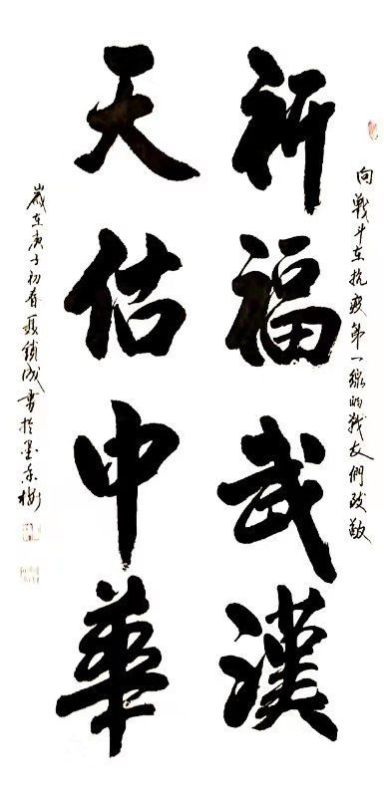 向戰斗在抗疫第一線的戰友們致敬
祈福武漢
天估中華
歲在庚子初春聂鎖成書於墨香榭